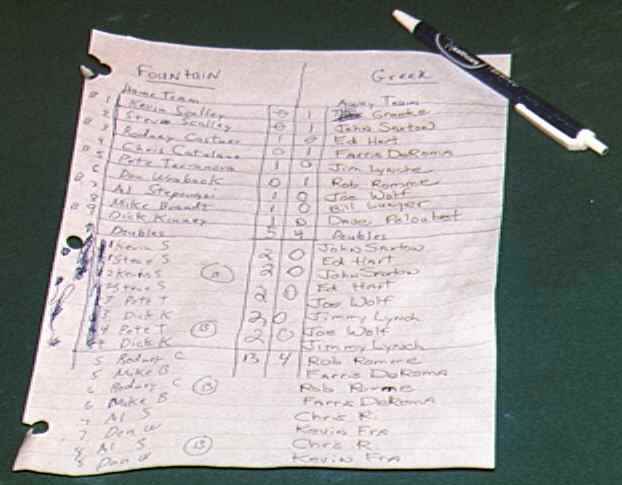 Fountain Greek
Home Team Away Team
1 Kevin Scalley 0 1 Greeke
2 Steve Scalley 0 1 John Saxton
3 Rodney Castner 0 Ed Hart
4 Chris Catalano 0 1 Farris DaRoma
5 Pete 1 0 Jim Lynche
6 Don 0 1 Rob Romme
7 Al 1 0 Joe Wolf
8 Mike Brandt 1 0 Bill
9 Dick Kinney 1 0 Dave
Doubles 5 4 Doubles
Kevin S 2 0 John Saxton
Steve S Ed Hart
Kevin S 2 0 John Saxton
Steve S Ed Hart
Pete T 2 0 Joe Wolf
Dick K Jimmy Lynch
4 Pete T 13 2 0 Joe Wolf
Dick K Jimmy Lynch
5 Rodney C 13 4 Rob Romme
5 Mike B Farris DaRoma
6 Rodney C 13 Rob Romme
6 Mike B Farris DaRoma
7 Al S Chris R.
7 Don W Kevin Fra
8 Al S 13 Chris R.
8 Don W Kevin Fra